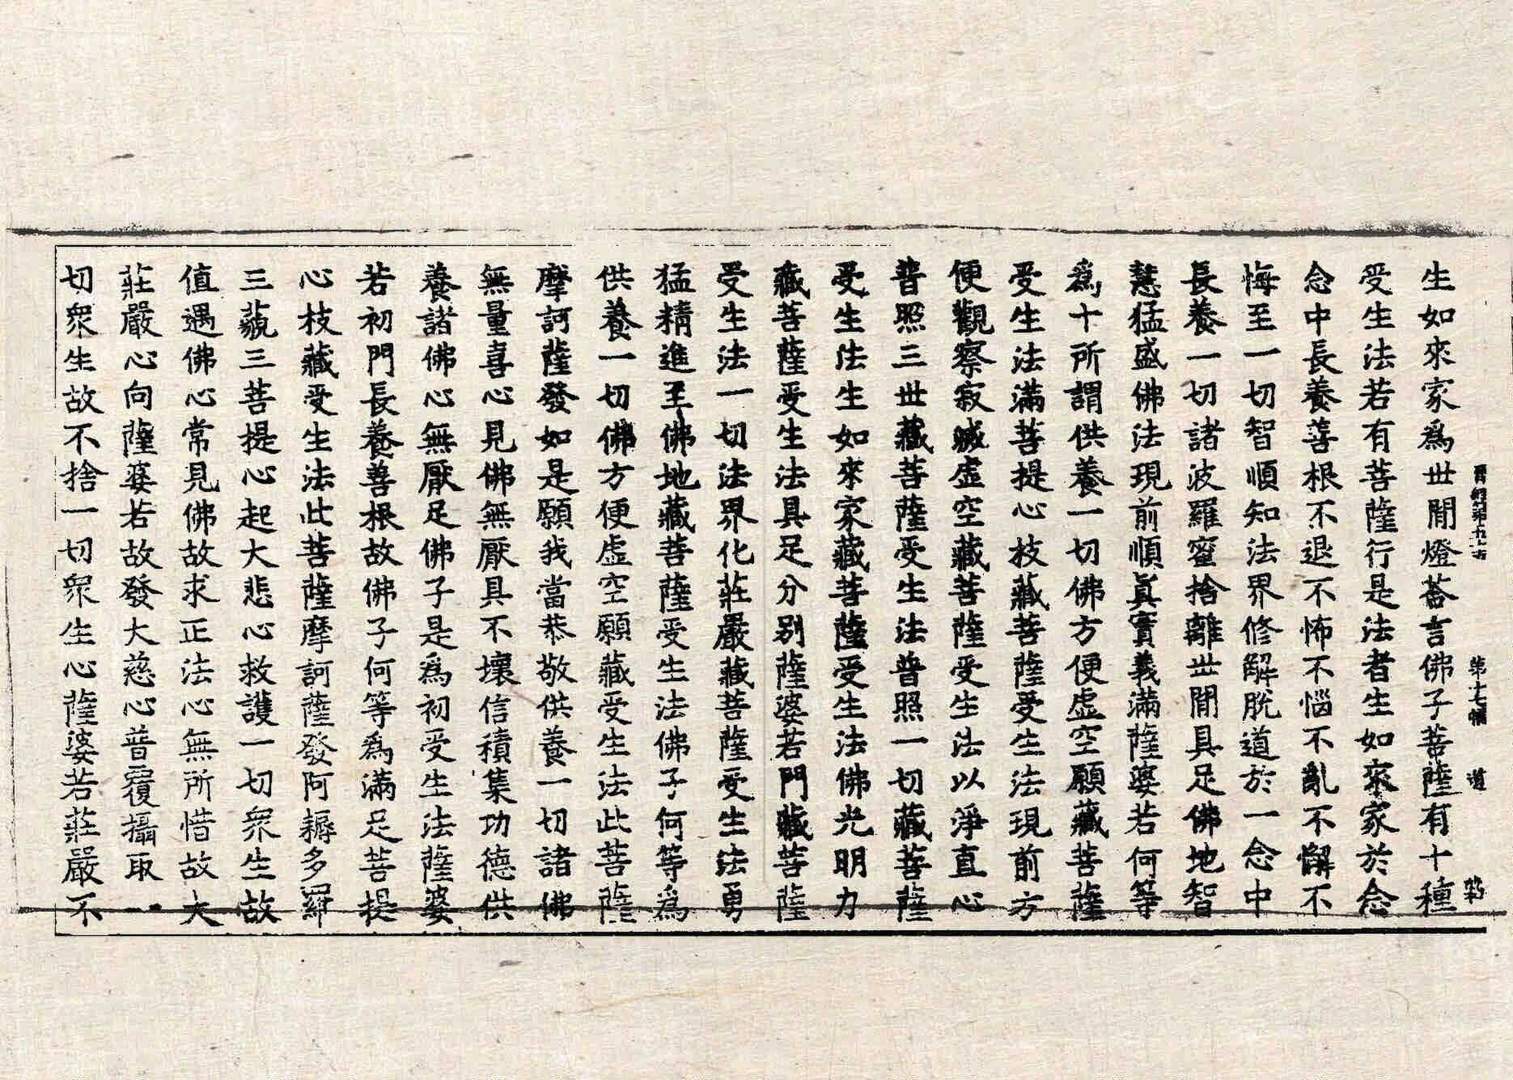 生如來家爲世間燈荅言佛子菩薩有十種
受生法若有菩薩行是法者生如來家於念
念中長養善根不退不怖不惱不亂不懈不
悔至一切智順知法界修解脫道於一念中
長養一切諸波羅蜜捨離世間具足佛地智
慧猛盛佛法現前順眞實義滿薩婆若何等
爲十所謂供養一切佛方便虛空願藏菩薩
受生法滿菩提心枝藏菩薩受生法現前方
便觀察寂滅虛空藏菩薩受生法以淨直心
普照三世藏菩薩受生法普照一切藏菩薩
受生法生如來家藏菩薩受生法佛光明力
藏菩薩受生法具足分别薩婆若門藏菩薩
受生法一切法界化莊嚴藏菩薩受生法勇
猛精進至佛地藏菩薩受生法佛子何等爲
供養一切佛方便虛空願藏受生法此菩薩
摩訶薩發如是願我當恭敬供養一切諸佛
無量喜心見佛無厭具不壞信積集功德供
養諸佛心無厭足佛子是爲初受生法薩婆
若初門長養善根故佛子何等爲滿足菩提
心枝藏受生法此菩薩摩訶薩發阿耨多羅
三藐三菩提心起大悲心救護一切衆生故
值遇佛心常見佛故求正法心無所惜故大
莊嚴心向薩婆若故發大慈心普覆攝取一
切衆生故不捨一切衆生心薩婆若莊嚴不
第十七幅 道